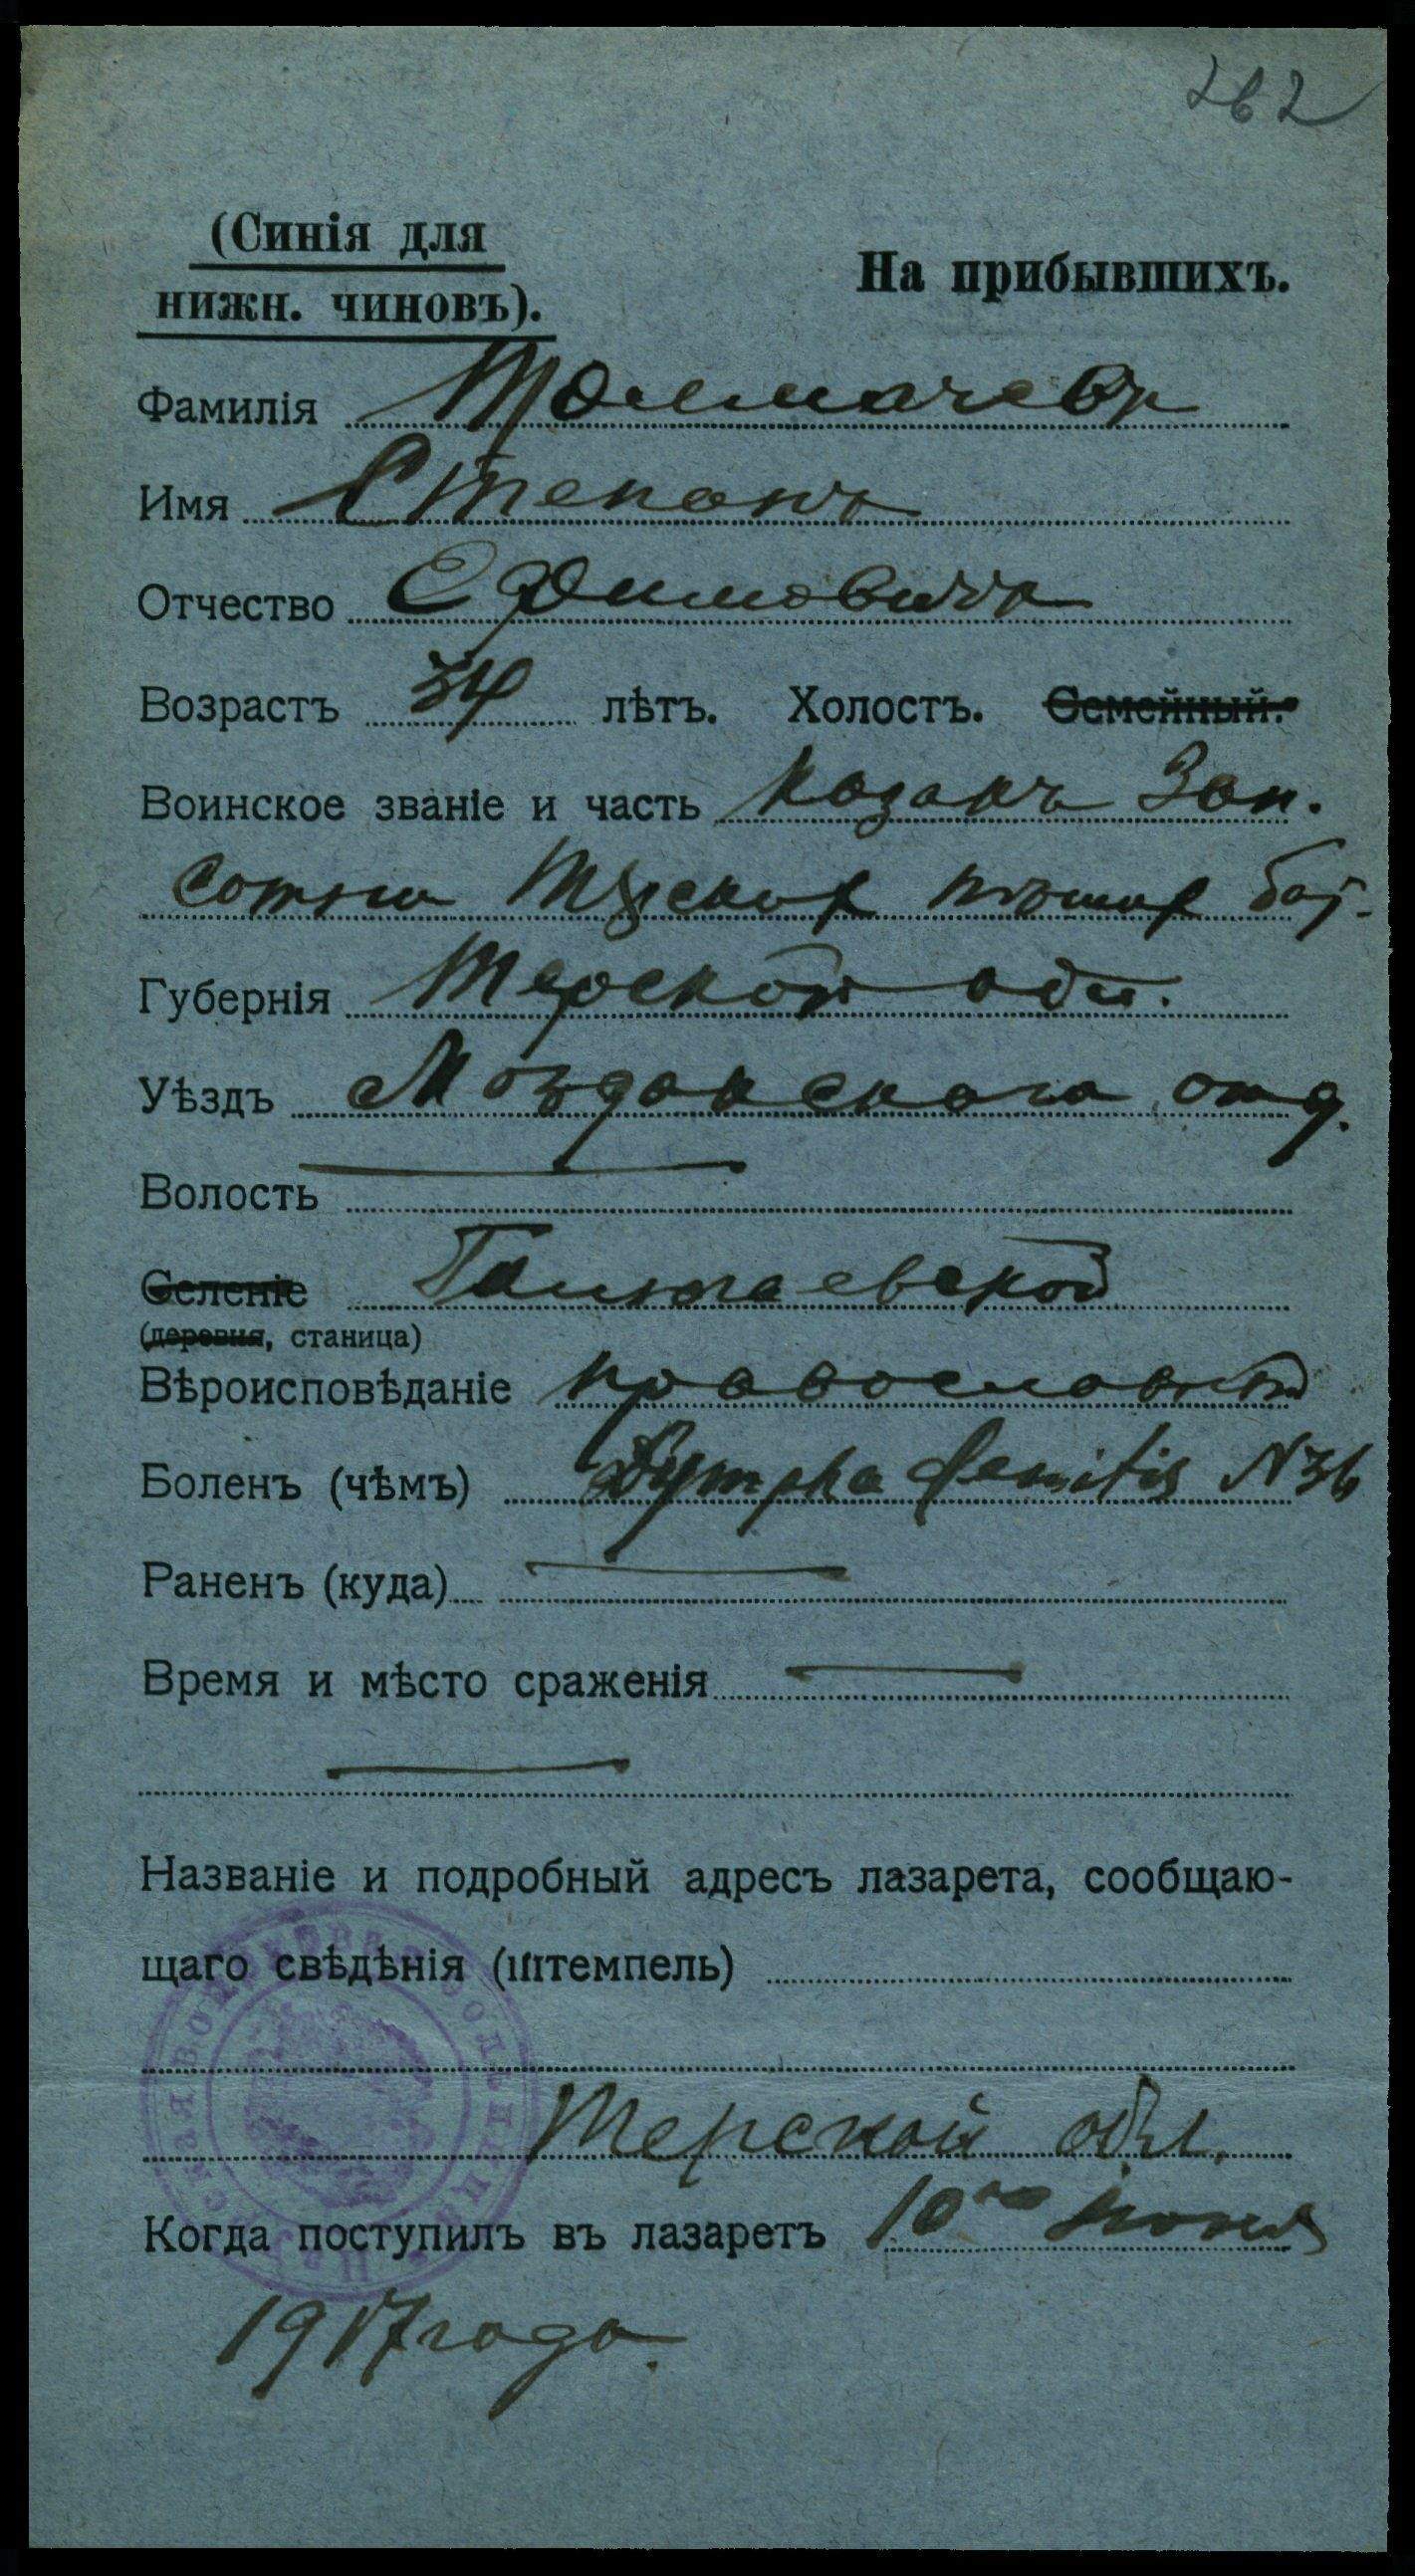 262
(Синія для
нижн. чиновъ).
На прибывшихъ.
Фамилія Толмачевъ
Имя Степанъ
Отчество Ефимовичъ
Возрастъ 34 лѣтъ. Холостъ. Семейный.
Воинское званіе и часть Казакъ Зап.
сотни Терскихъ пѣших бат.
Губернія Терской обл.
Уѣздъ Моздокскаго отд.
Волость
Селеніе Галюгаевской
(деревня, станица)
Вѣроисповѣданіе православный
Боленъ (чѣмъ) Lymphadenitis N 36
Раненъ (куда)
Время и мѣсто сраженія
Названіе и подробный адресъ лазарета, сообщаю-
щаго свѣдѣнія (штемпель)
Терской обл.
Когда поступилъ въ лазаретъ 10го
1917 года.